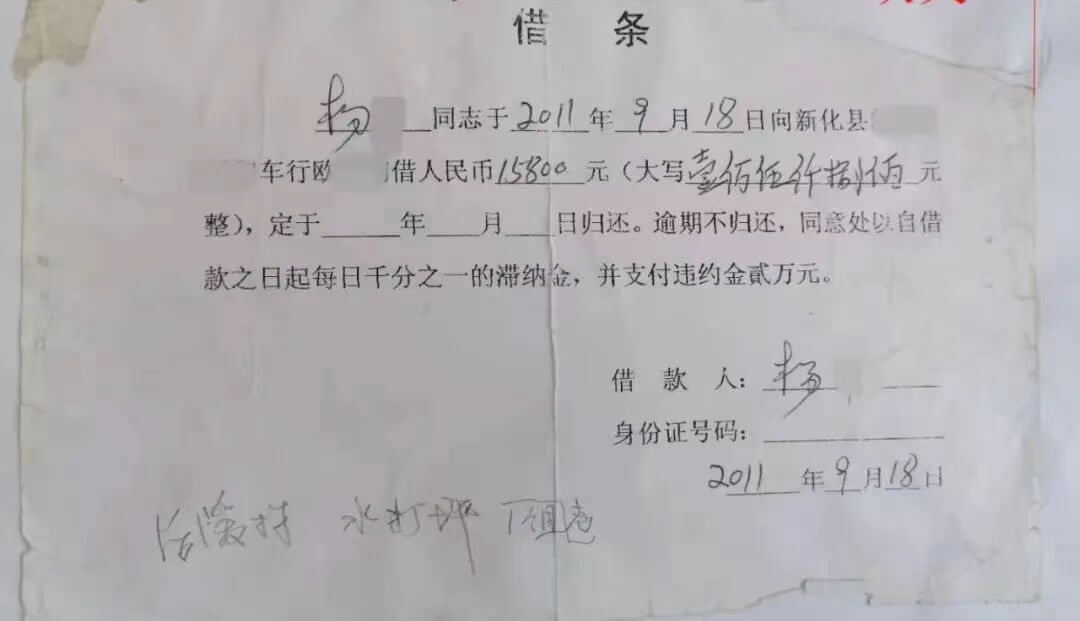 借 条
杨 同志于2011年9月18日向新化县
车行欧 借人民币15800元（大写壹佰伍仟捌佰元
整），定于____年___月___日归还。逾期不归还，同意处以自借
款之日起每日千分之一的滞纳金，并支付违约金贰万元。
借 款 人：杨
身份证号码：
2011年9月18日
水打坪